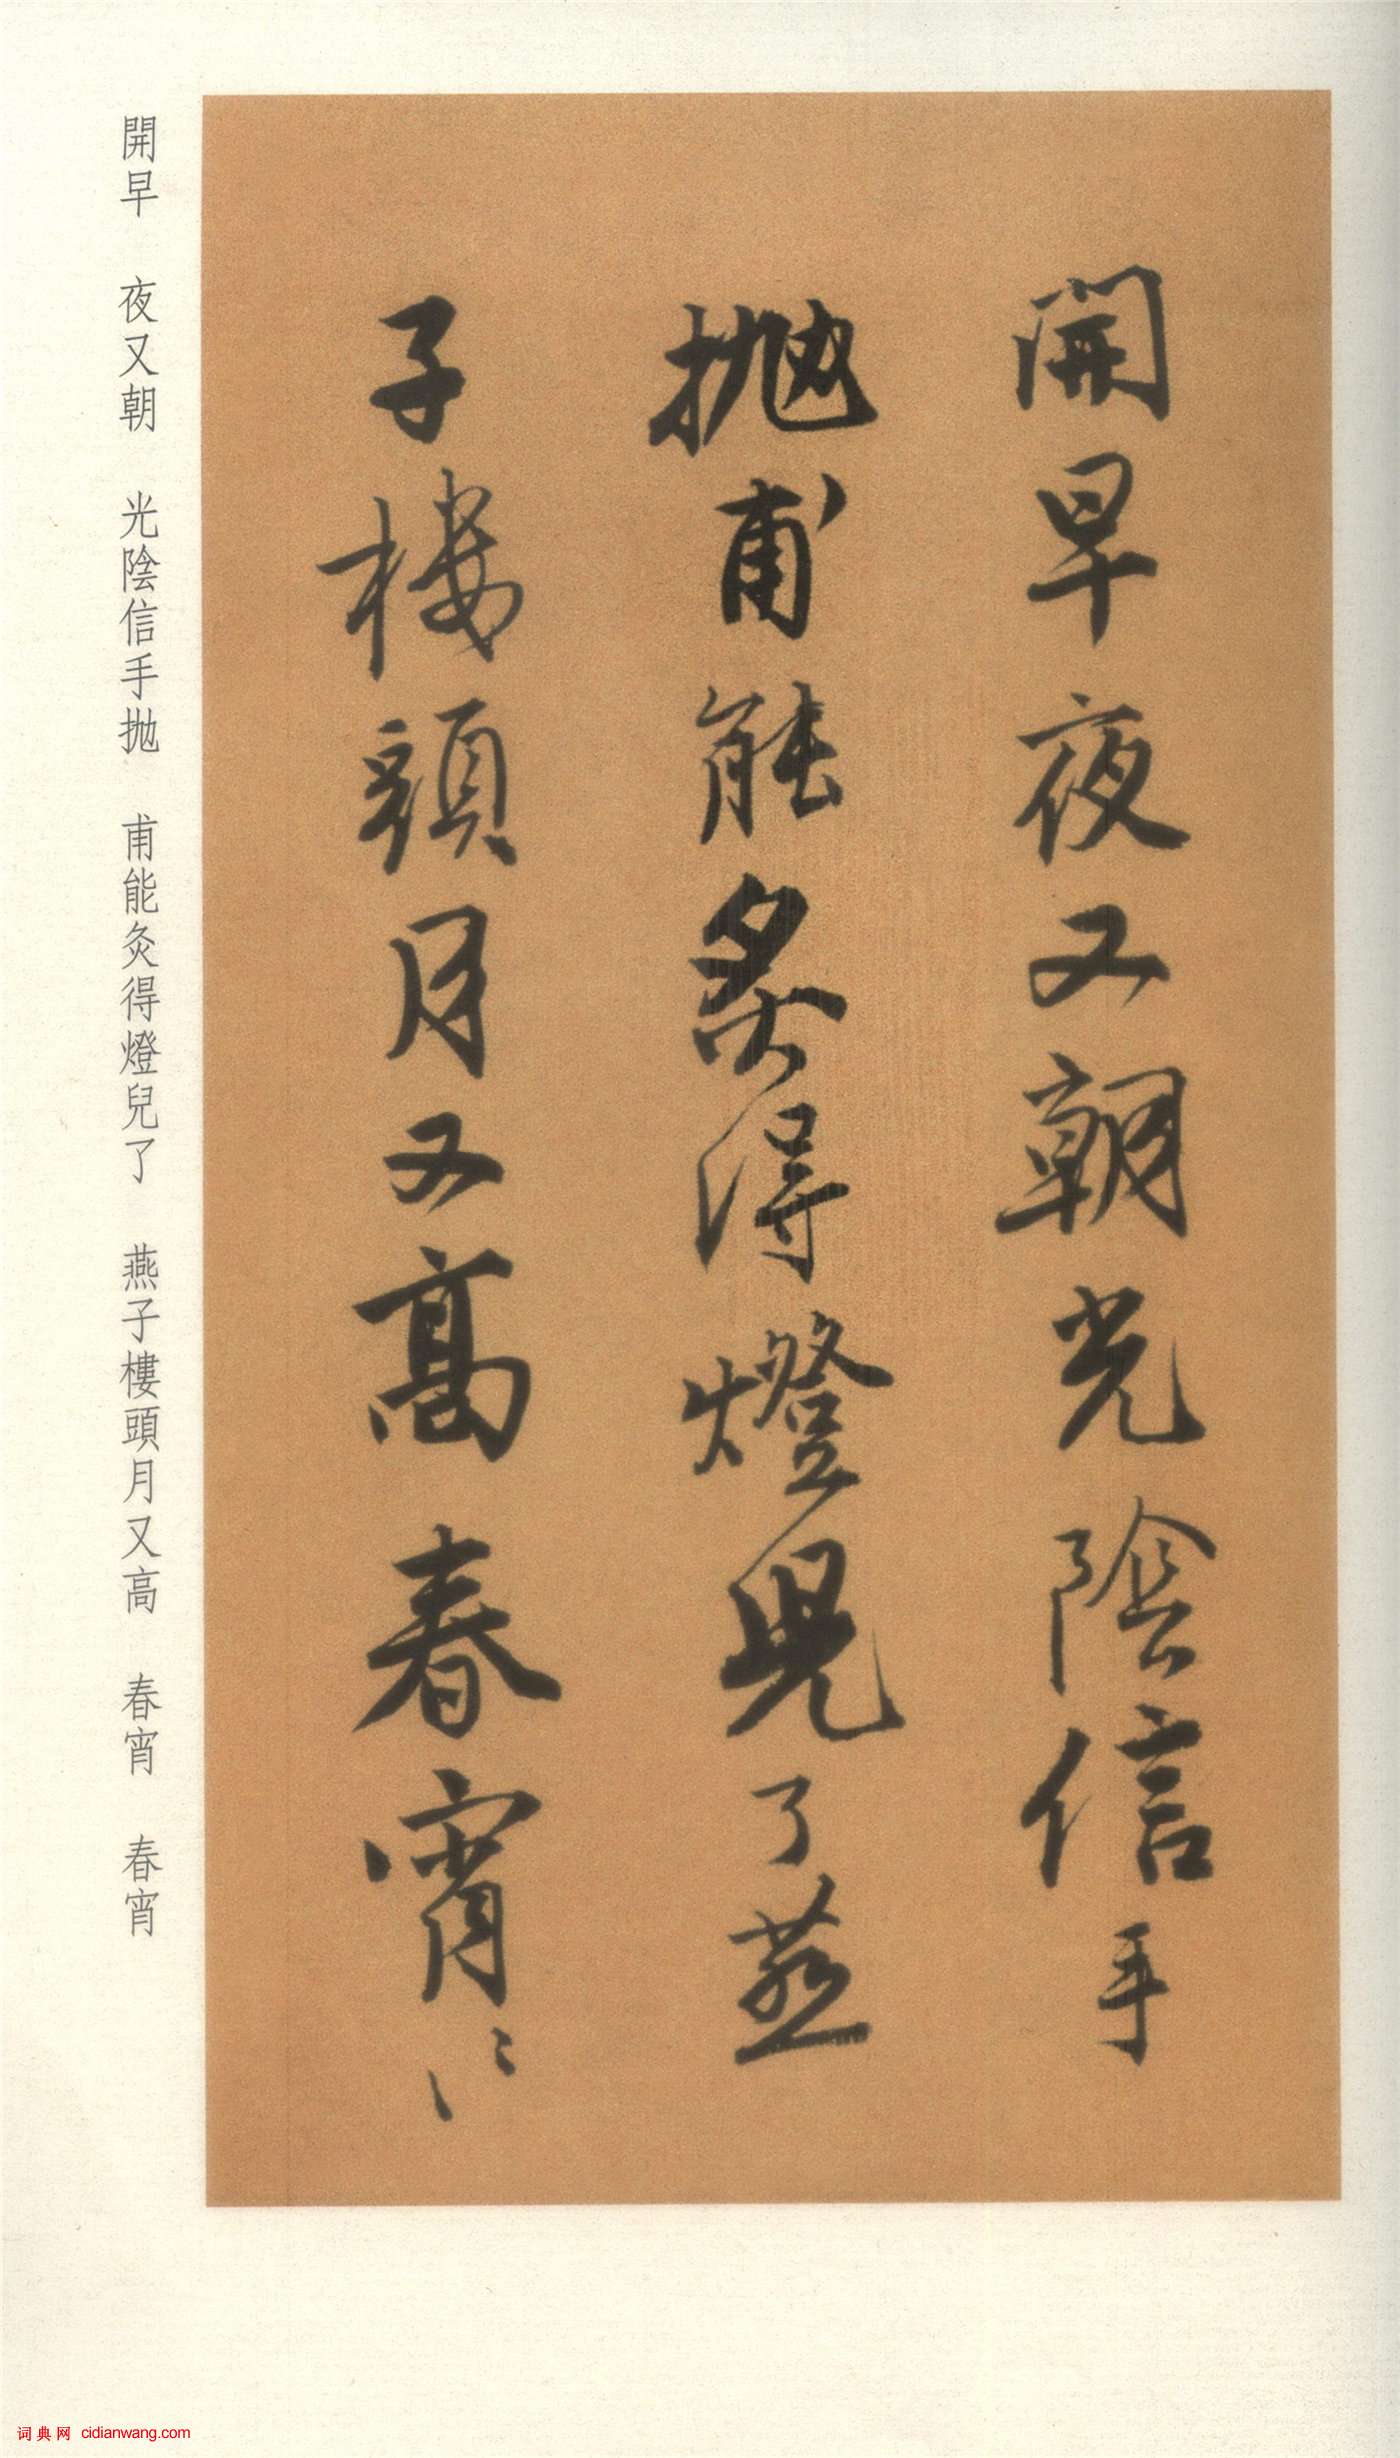 開早夜又朝光陰信手
抛甫能炙得燈兒了燕
子樓頭月又高春宵〻
開早　夜又朝　光陰信手抛　甫能灸得燈兒了　燕子樓頭月又高　春宵　春宵
词典网 cidianwang.com